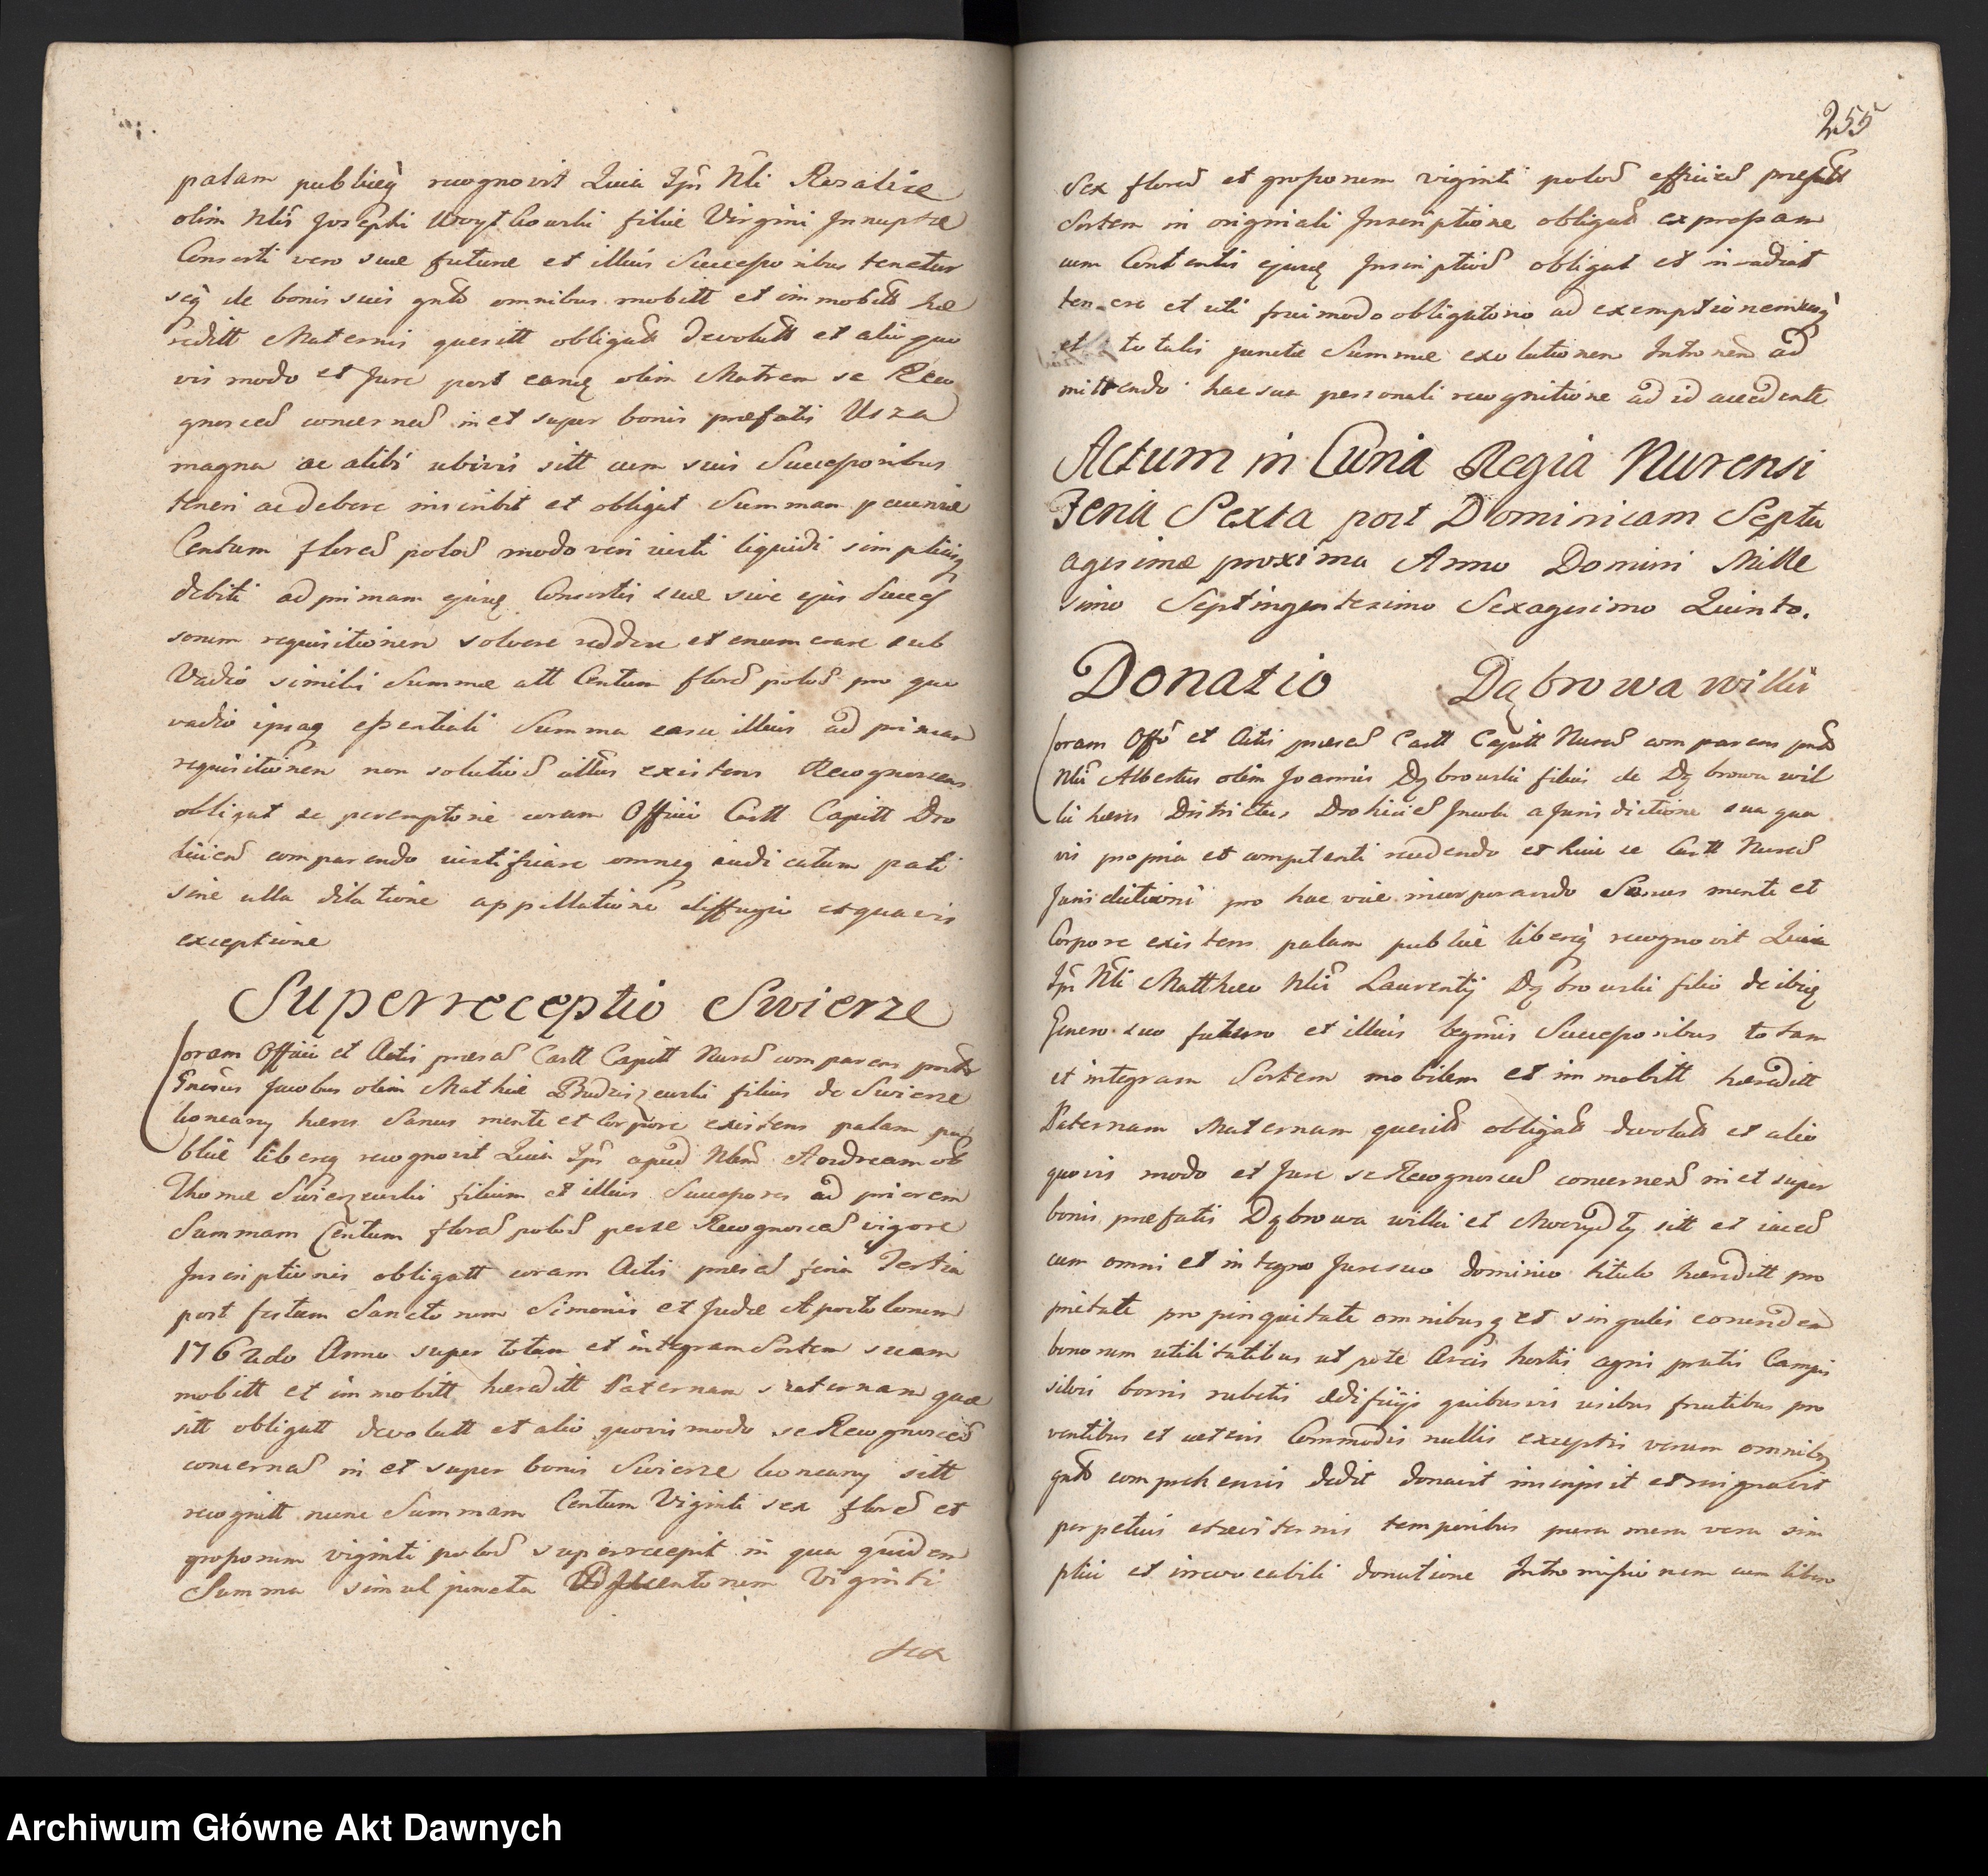 palam publicẹq̀ recognovit Quia Ips Nbli Rosaliæ
olim Nblis Josephi filiæ Virgini Innuptæ
Consorti vero suæ futuræ et illius Successoribus tenetur
seq̀ de bonis suis gntr omnibus mobilt et immobilt hæ
reditt Maternis quesitt obligatt devolutt et alio quo
vis modo et Jure post eamq olim Matrem se Reco
gnosced concerned in et super bonis præfatis Usza
magna ac alibi ubivis sitt cum suis Successoribus
teneri ac debere inscribit et obligat Summam pecuniæ
Centum flored polod modo veri iusti liquidi simpliciq
debiti ad primam ejusq Consortis suæ sive ejus Succes
sorum requisitionem solvere reddere et enumerare sub
Vadio simili Summæ att Centum flored polod pro quo
vadio ipsaq essentiali Summa casu illius ad primam
requisitionem non solutiod existens Recognoscens
obligat se peremptorie coram Officio Castt Capitt Dro
hiicen comparendo iustificare omneq iudicatum pati
sine ulla dilatione appellatione diffugio et quavis
exceptione
Superreceptio Swierze
Coram Officio et Actis præsed Castt Capitt Nured comparens
Gnrosus Jacobus olim Mathiæ filius de Swierze
hæres Sanus mente et Corpore existens palam pu
blicè liberèq recognovit Quia Ips apud Nblem Andream olim
Thomæ Swierzewski filium et illius Successores ad priorem
Summam Centum flored polod per se Recognosced vigore
Inscriptionis obligatt coram Actis præsed feria Tertia
post festum Sanctorum Simonis et Judæ Apostolorum
1762do Anno super totam et integram Sortem suam
mobilt et immobilt hæreditt Paternam Maternam quæ
sitt obligatt devolutt et alio quovis modo se Recognosced
concerned in et super bonis Swierze sitt
recognitt nunc Summam Centum Viginti sex flored et
grossorum viginti polod superrecepit in qua quidem
Summa simul juncta Ducentorum Viginti
sex
255
Sex flored et grossorum viginti polod efficied præfatt
Sortem in originali Inscriptione obligatt expressam
cum Contentis ejusq Inscriptiod obligat et invadiat
tenere et uti frui modo obligatorio ad exemptionem usq̀
et totalis junctæ Summæ exolutionem Intronem ad
mittendo hac sua personali recognitione ad id accedente
Actum in Curia Regia Nurensi
Feria Sexta post Dominicam Septu
agesimæ proxima Anno Domini Mille
simo Septingentesimo Sexagesimo Quinto.
Donatio Dąbrowa willi
Coram Offo et Actis præsed Castt Capitt Nured comparens
Nblis Albertus olim Joannis Dąbrowski filius de Dąbrowa wil
li hæres Districtus Drohicied Incola a Jurisdictione sua qua
vis propria et competenti recedendo et huic se Castt Nured
Jurisdictioni pro hac vice incorporando Sanus mente et
Corpore existens palam publicè liberèq̀ recognovit Quia
Ips Nbli Matthæo Nblis Laurentij Dąbrowski filio de ibiq
Genero suo futuro et illius legmis Successoribus totam
et integram Sortem mobilem et immobilt hæreditt
Paternam Maternam quesitt obligatt devolutt et alio
quovis modo et Jure se Recognosced concerned in et super
bonis præfatis Dąbrowa willi et sitt et iaced
cum omni et integro Jure suo dominio titulo hæreditt pro
prietate propinquitate omnibusq et singulis eorundem
bonorum utilitatibus ut pote Areis hortis agris pratis Campis
silvis borris rubetis ædificijs quibusvis usibus fructibus pro
ventibus et cæteris Commodis nullis exceptis verum omnibus
gntr comprehensis dedit donavit inscripsit et resignavit
perpetuis et æviternis temporibus pura mera vera sim
plici et irrevocabili donatione Intromissionem cum libero
Archiwum Główne Akt Dawnych